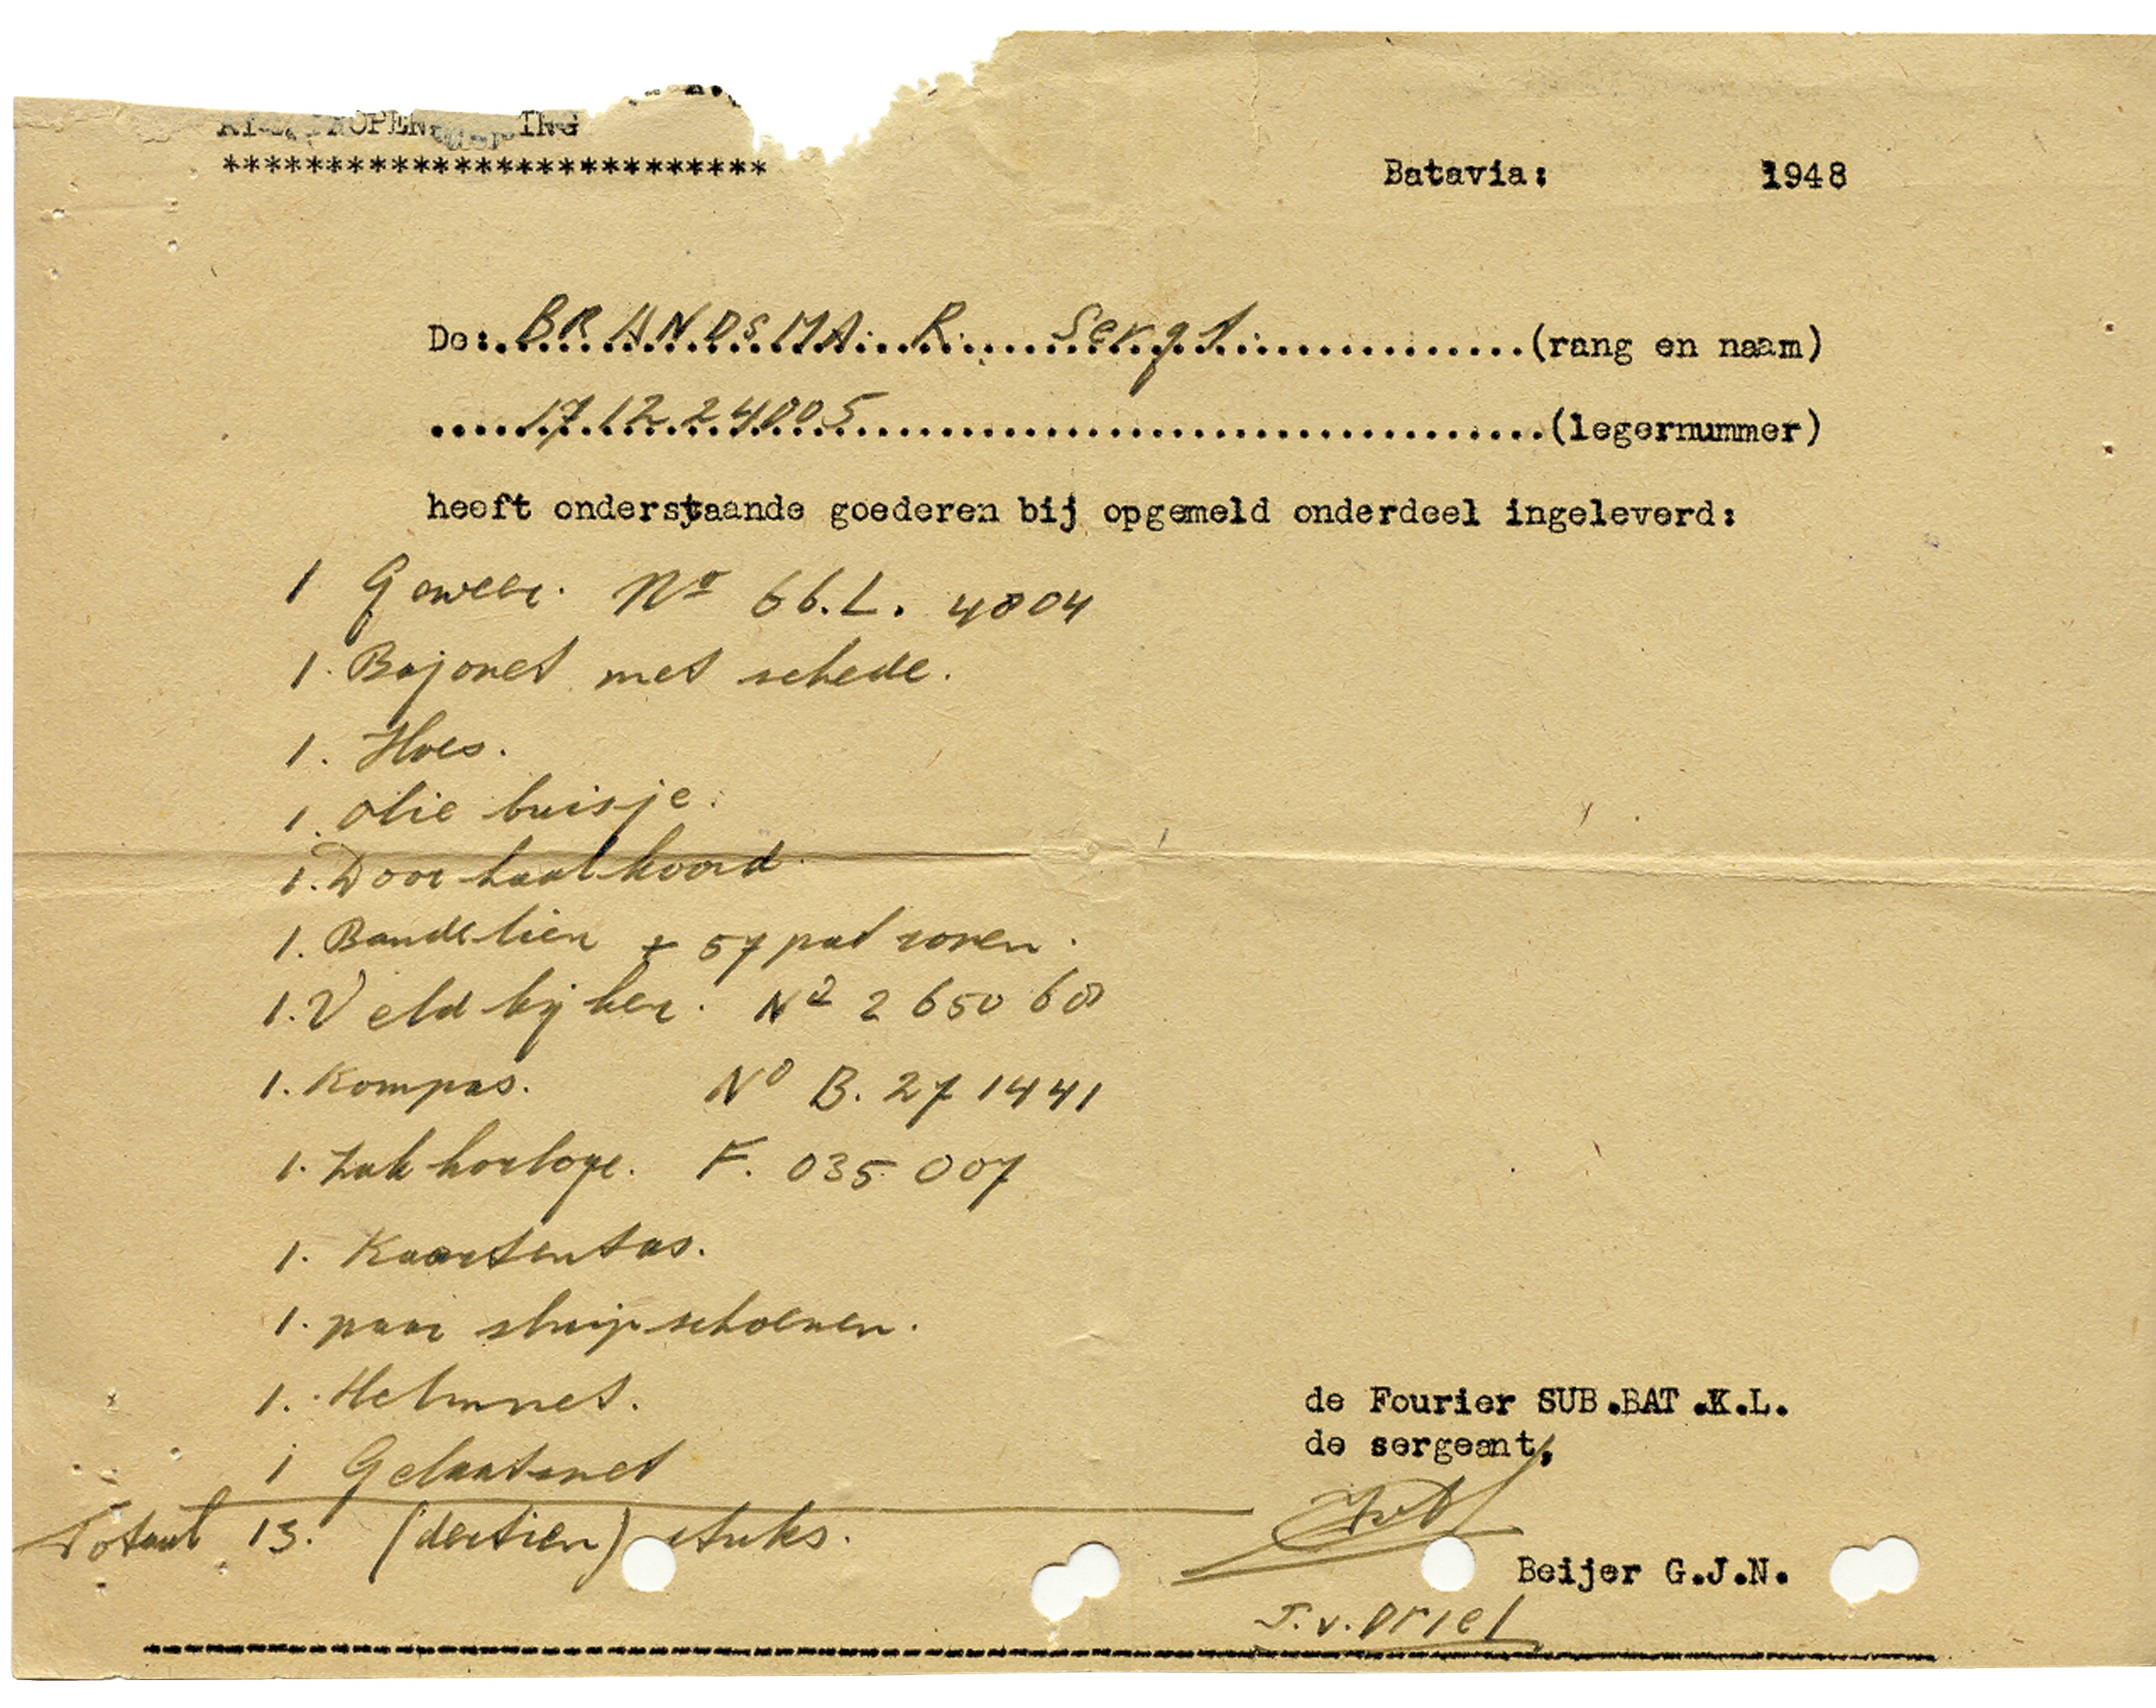 *************************** Batavia: 1948
De: BRANDSMA. R. Sergt. (rang en naam)
17.12.24005 (legernummer)
heeft onderstaande goederen bij opgemeld onderdeel ingeleverd:
1 Geweer. No 66.L. 4804
1. Bajonet met schede.
1. Hoes.
1. Olie buisje.
1. Door haal koord.
1. Bandelier + 57 patronen.
1. Veld kijker. No 2 650 60
1. Kompas. No B. 27 1441
1. Zak horloge. F. 035 007
1. Kaartentas.
1. paar sluipschoenen.
1. Helmnet.
1 Gelaatsnet
Totaal 13. (dertien) stuks.
de Fourier SUB.BAT.K.L.
de sergeant,
Beijer G.J.N.
J.v. Driel